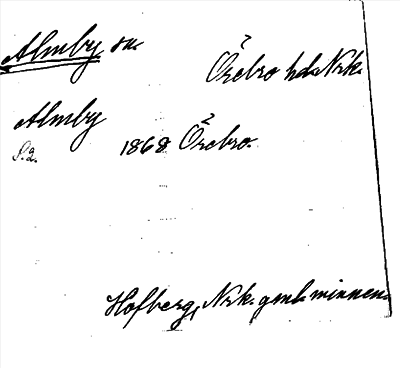 Almby sn.
Örebro hd. Nrk.
Almby
S. 2. 1868 Örebro.
Hofberg, Nrk. gml. minnen.